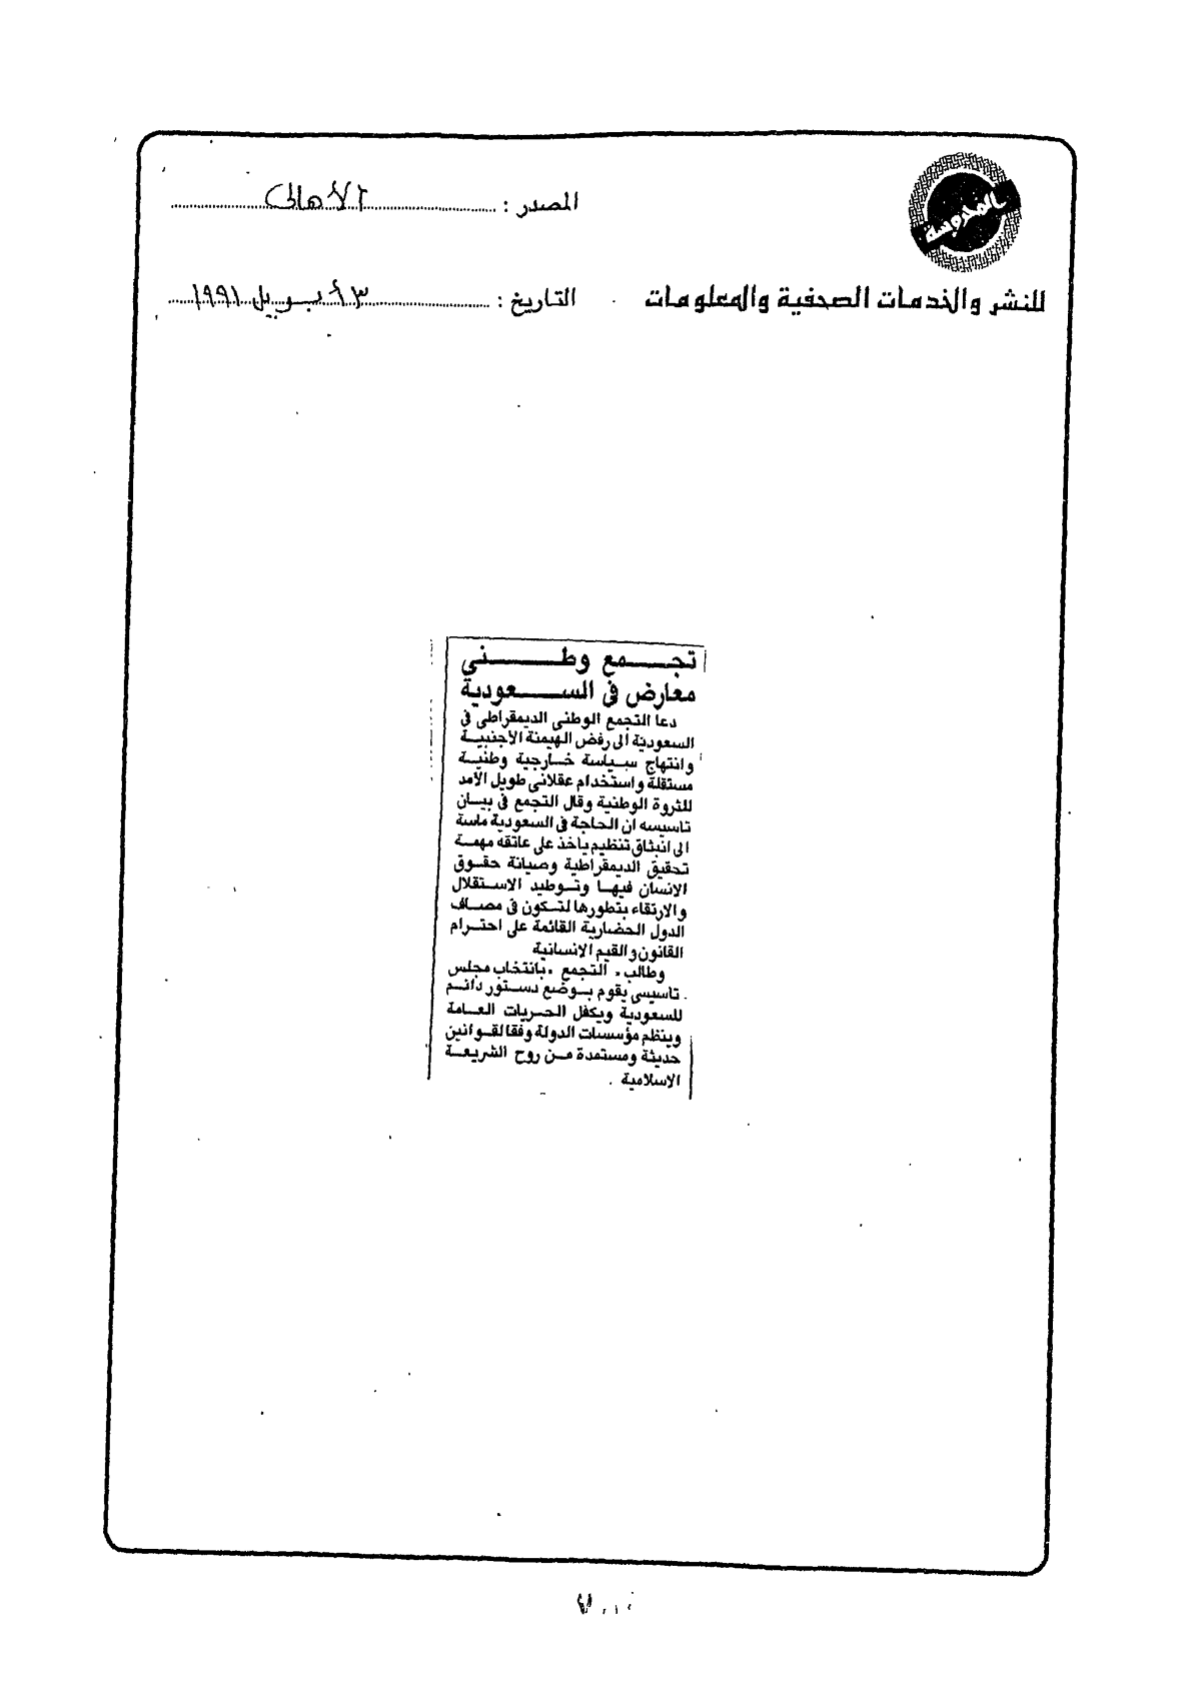 المحروسة
للنشر والخدمات الصحفية والمعلومات
المصدر : الأهالى
التاريخ : ٣ أبريل ١٩٩١
تجمع وطني
معارض في السعودية
دعا التجمع الوطني الديمقراطي في
السعودية الى رفض الهيمنة الاجنبية
وانتهاج سياسة خارجية وطنية
مستقلة واستخدام عقلاني طويل الأمد
للثروة الوطنية وقال التجمع في بيان
تاسيسه ان الحاجة في السعودية ماسة
الى انبثاق تنظيم ياخذ على عاتقه مهمة
تحقيق الديمقراطية وصيانة حقوق
الانسان فيها وتوطيد الاستقلال
والارتقاء بتطورها لتكون في مصاف
الدول الحضارية القائمة على احترام
القانون والقيم الانسانية
وطالب . التجمع . بانتخاب مجلس
تاسيسي يقوم بوضع دستور دائم
للسعودية ويكفل الحريات العامة
وينظم مؤسسات الدولة وفقا لقوانين
حديثة ومستمدة من روح الشريعة
الاسلامية .